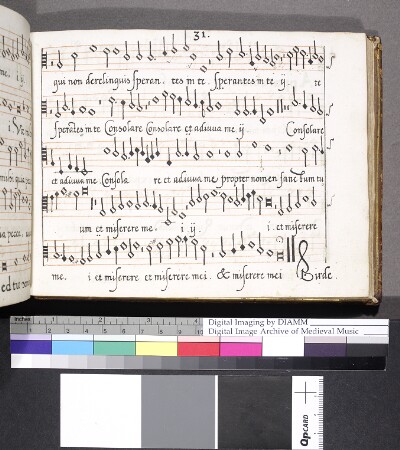 31.
qui non derelinquis speran. tes in te. sperantes in te ij te
sperātes in te Consolare Consolare et adiuua me ij Consolare
et adiuua me. Consola re et adiuua me propter nomen sanctum tu
um et miserere me. i ij i. et miserere
me. i et miserere et miserere mei. & miserere mei Birde.
inches 1 2 3 4
Digital Imaging by DIAMM
Digital Image Archive of Medieval Music
QPCARD